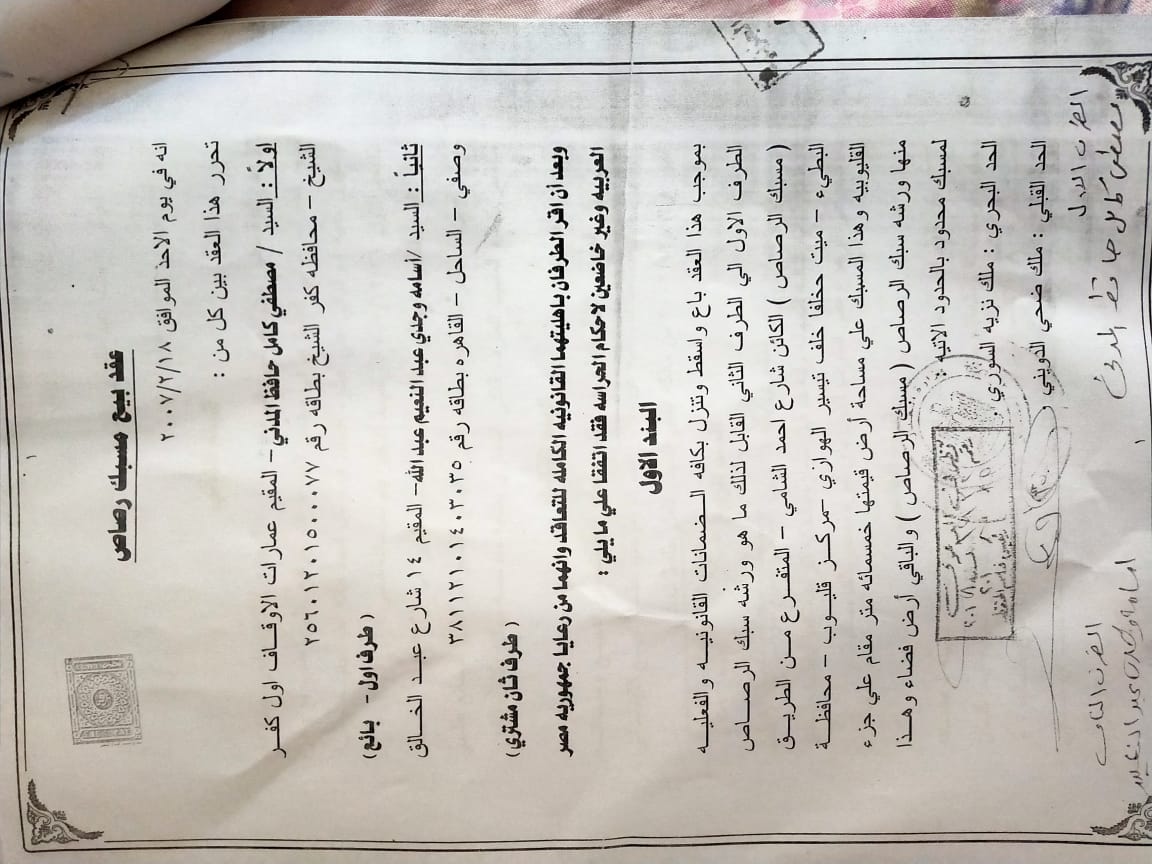 عقد بيع مسبك رصاص
انه في يوم الاحد الموافق ٢٠٠٧/٢/١٨
تحرر هذا العقد بين كل من :
اولاً : السيد / مصطفي كامل حافظ المدني - المقيم عمارات الاوقاف اول كفر
الشيخ - محافظه كفر الشيخ بطاقه رقم ٢٥٦٠١٢٠١٥٠٠٠٧٧
( طرف اول - بائع)
ثانياً : السيد /أسامه وجدي عبد النعيم عبد الله - المقيم ١٤ شارع عبد الخالق
وصفي - الساحل - القاهره بطاقه رقم ٣٨١١٢١٠١٤٠٣٠٣٥
( طرف ثان مشتري)
وبعد ان اقر الطرفان باهليتهما القانونيه الكامله للتعاقد وانهما من رعايا جمهوريه مصر
العربيه وغير خاضعين لاحكام الحراسه فقد اتفقا علي ما يلي :
البند الاول
بموجب هذا العقد باع واسقط وتنزل بكافه الضمانات القانونيه والفعليه
الطرف الاول الي الطرف الثاني القابل لذلك ما هو ورشه سبك الرصاص
( مسبك الرصاص ) الكائن شارع احمد الشامي - المتفرع من الطريق
البطيء - ميت حخلفا خلف تيسير الهوازي -مركز قليوب - محافظة
القليوبيه وهذا المسبك علي مساحة أرض قيمتها خمسمائه متر مقام علي جزء
منها ورشه سبك الرصاص ( مسبك الرصاص ) والباقي أرض فضاء وهذا
لمسبك محدود بالحدود الاتيه :
الحد البحري : ملك نزيه السوري
الحد القبلي : ملك ضحي الدويني
الطرف الاول
مصطفى كامل حافظ المدنى
الطرف الثانى
اسامه وجدى عبد النعيم